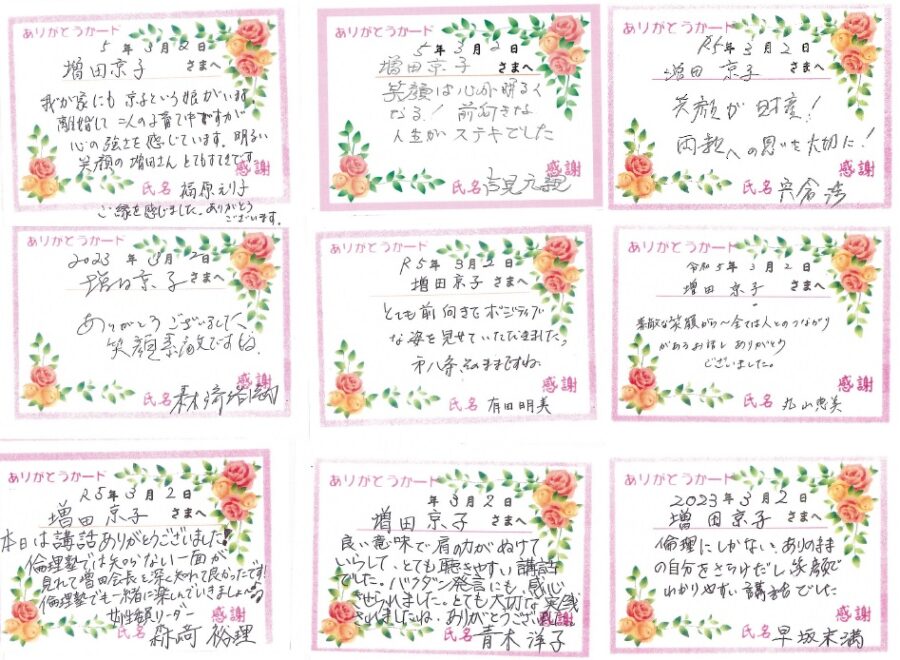 ありがとうカード
5年3月2日
増田京子 さまへ
我が家にも 京子という娘がいます
離婚して 二人の子育て中ですが
心の強さを感じています。明るい
笑顔の増田さん とてもすてきです
感謝
氏名 福原えり子
ご縁を感じました。ありがとう
ございます。
ありがとうカード
5年3月2日
増田京子 さまへ
笑顔は心が明るく
なる! 前向きな
人生が ステキでした
感謝
氏名
ありがとうカード
R5年3月2日
増田 京子 さまへ
笑顔が財産!
両親への思いを大切に!
感謝
氏名
ありがとうカード
2023年3月2日
増田京子 さまへ
ありがとうございました
笑顔素敵ですね。
感謝
氏名
ありがとうカード
R5年3月2日
増田京子 さまへ
とても前向きでポジティブ
な姿を見せていただきました。
そのままですね
感謝
氏名 有田明美
ありがとうカード
令和5年3月2日
増田 京子 さまへ
素敵な笑顔から〜全ては人とのつながり
があるお話し ありがとう
ございました。
感謝
氏名 丸山恵美
ありがとうカード
R5年3月2日
増田 京子 さまへ
本日は講話ありがとうございました!
倫理塾では知らない一面が
見れて増田会長を深く知れて良かったです!
倫理塾でも一緒に楽しんでいきましょ〜♪
女性リーダー
感謝
氏名 森﨑 裕理
ありがとうカード
年3月2日
増田 京子 さまへ
良い意味で肩の力がぬけて
いらして、とても聴きやすい講話
でした。バクダン発言にも、感心
させられました。とても大切な実践
されましたね。ありがとうございました
感謝
氏名 青木 洋子
ありがとうカード
2023年3月2日
増田 京子 さまへ
倫理にしかない、ありのまま
の自分をさらけだし笑顔で
わかりやすい講話でした
感謝
氏名 早坂末満